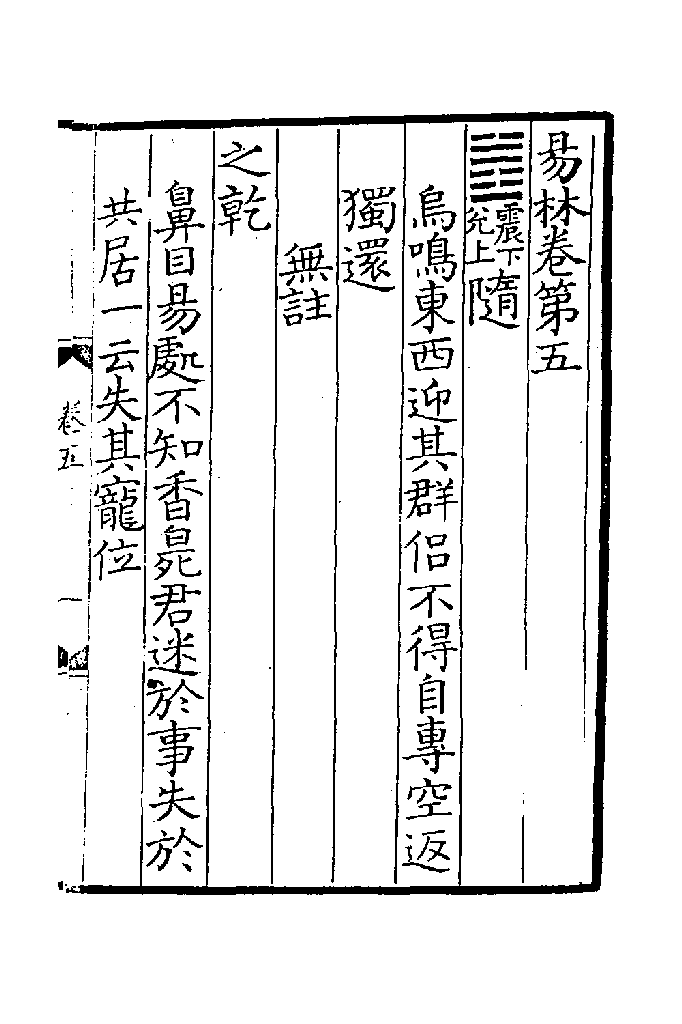 易林卷第五
䷐震下兊上隨
烏鳴東西迎其群侶不得自專空返
獨還
無註
之乾
鼻目易處不知香臰君迷於事失於
共居一云失其寵位
卷五 一